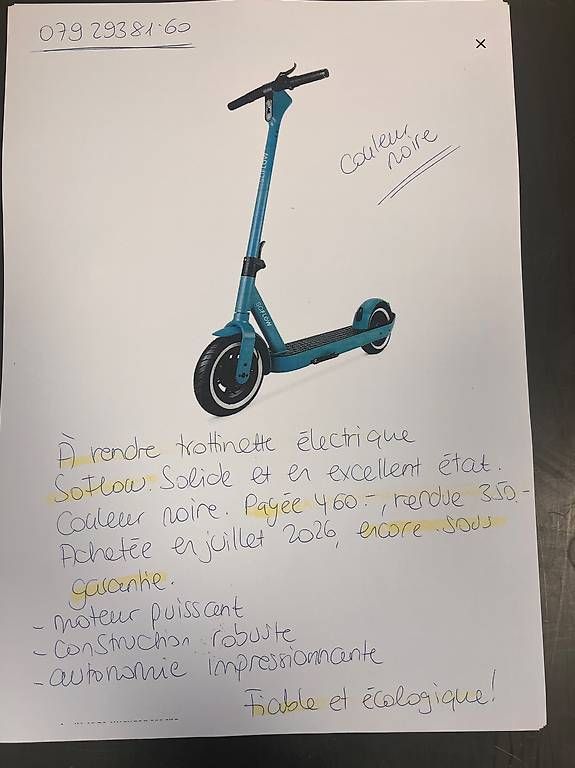 079 29381·60
couleur
noire
SOFLOW
À rendre trottinette électrique
SoFlow. Solide et en excellent état.
Couleur noire. Payée 460.-, rendue 350.-
Achetée en juillet 2026, encore sous
garantie.
- moteur puissant
- construction robuste
- autonomie impressionnante
Fiable et écologique!